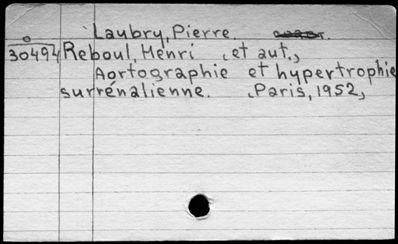 Laubry, Pierre.
o
30494 Reboul, Henri et aut.,
Aortographie et hypertrophie
surrénalienne. Paris, 1952,